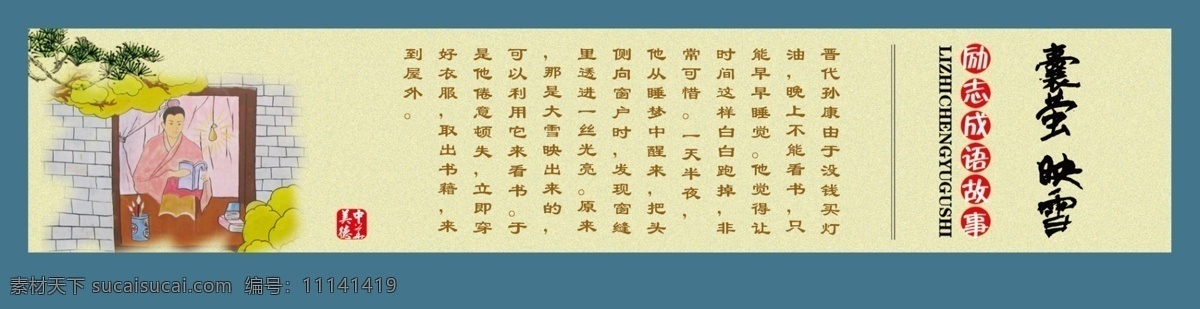 囊萤 映雪
励志成语故事
LIZHICHENGYUGUSHI
晋代孙康由于没钱买灯
油，晚上不能看书，只
能早早睡觉。他觉得让
时间这样白白跑掉，非
常可惜。一天半夜，
他从睡梦中醒来，把头
侧向窗户时，发现窗缝
里透进一丝光亮。原来
，那是大雪映出来的，
可以利用它来看书。于
是他倦意顿失，立即穿
好衣服，取出书籍，来
到屋外。
中华
美德
素材天下 sucaisucai.com 编号：11141419